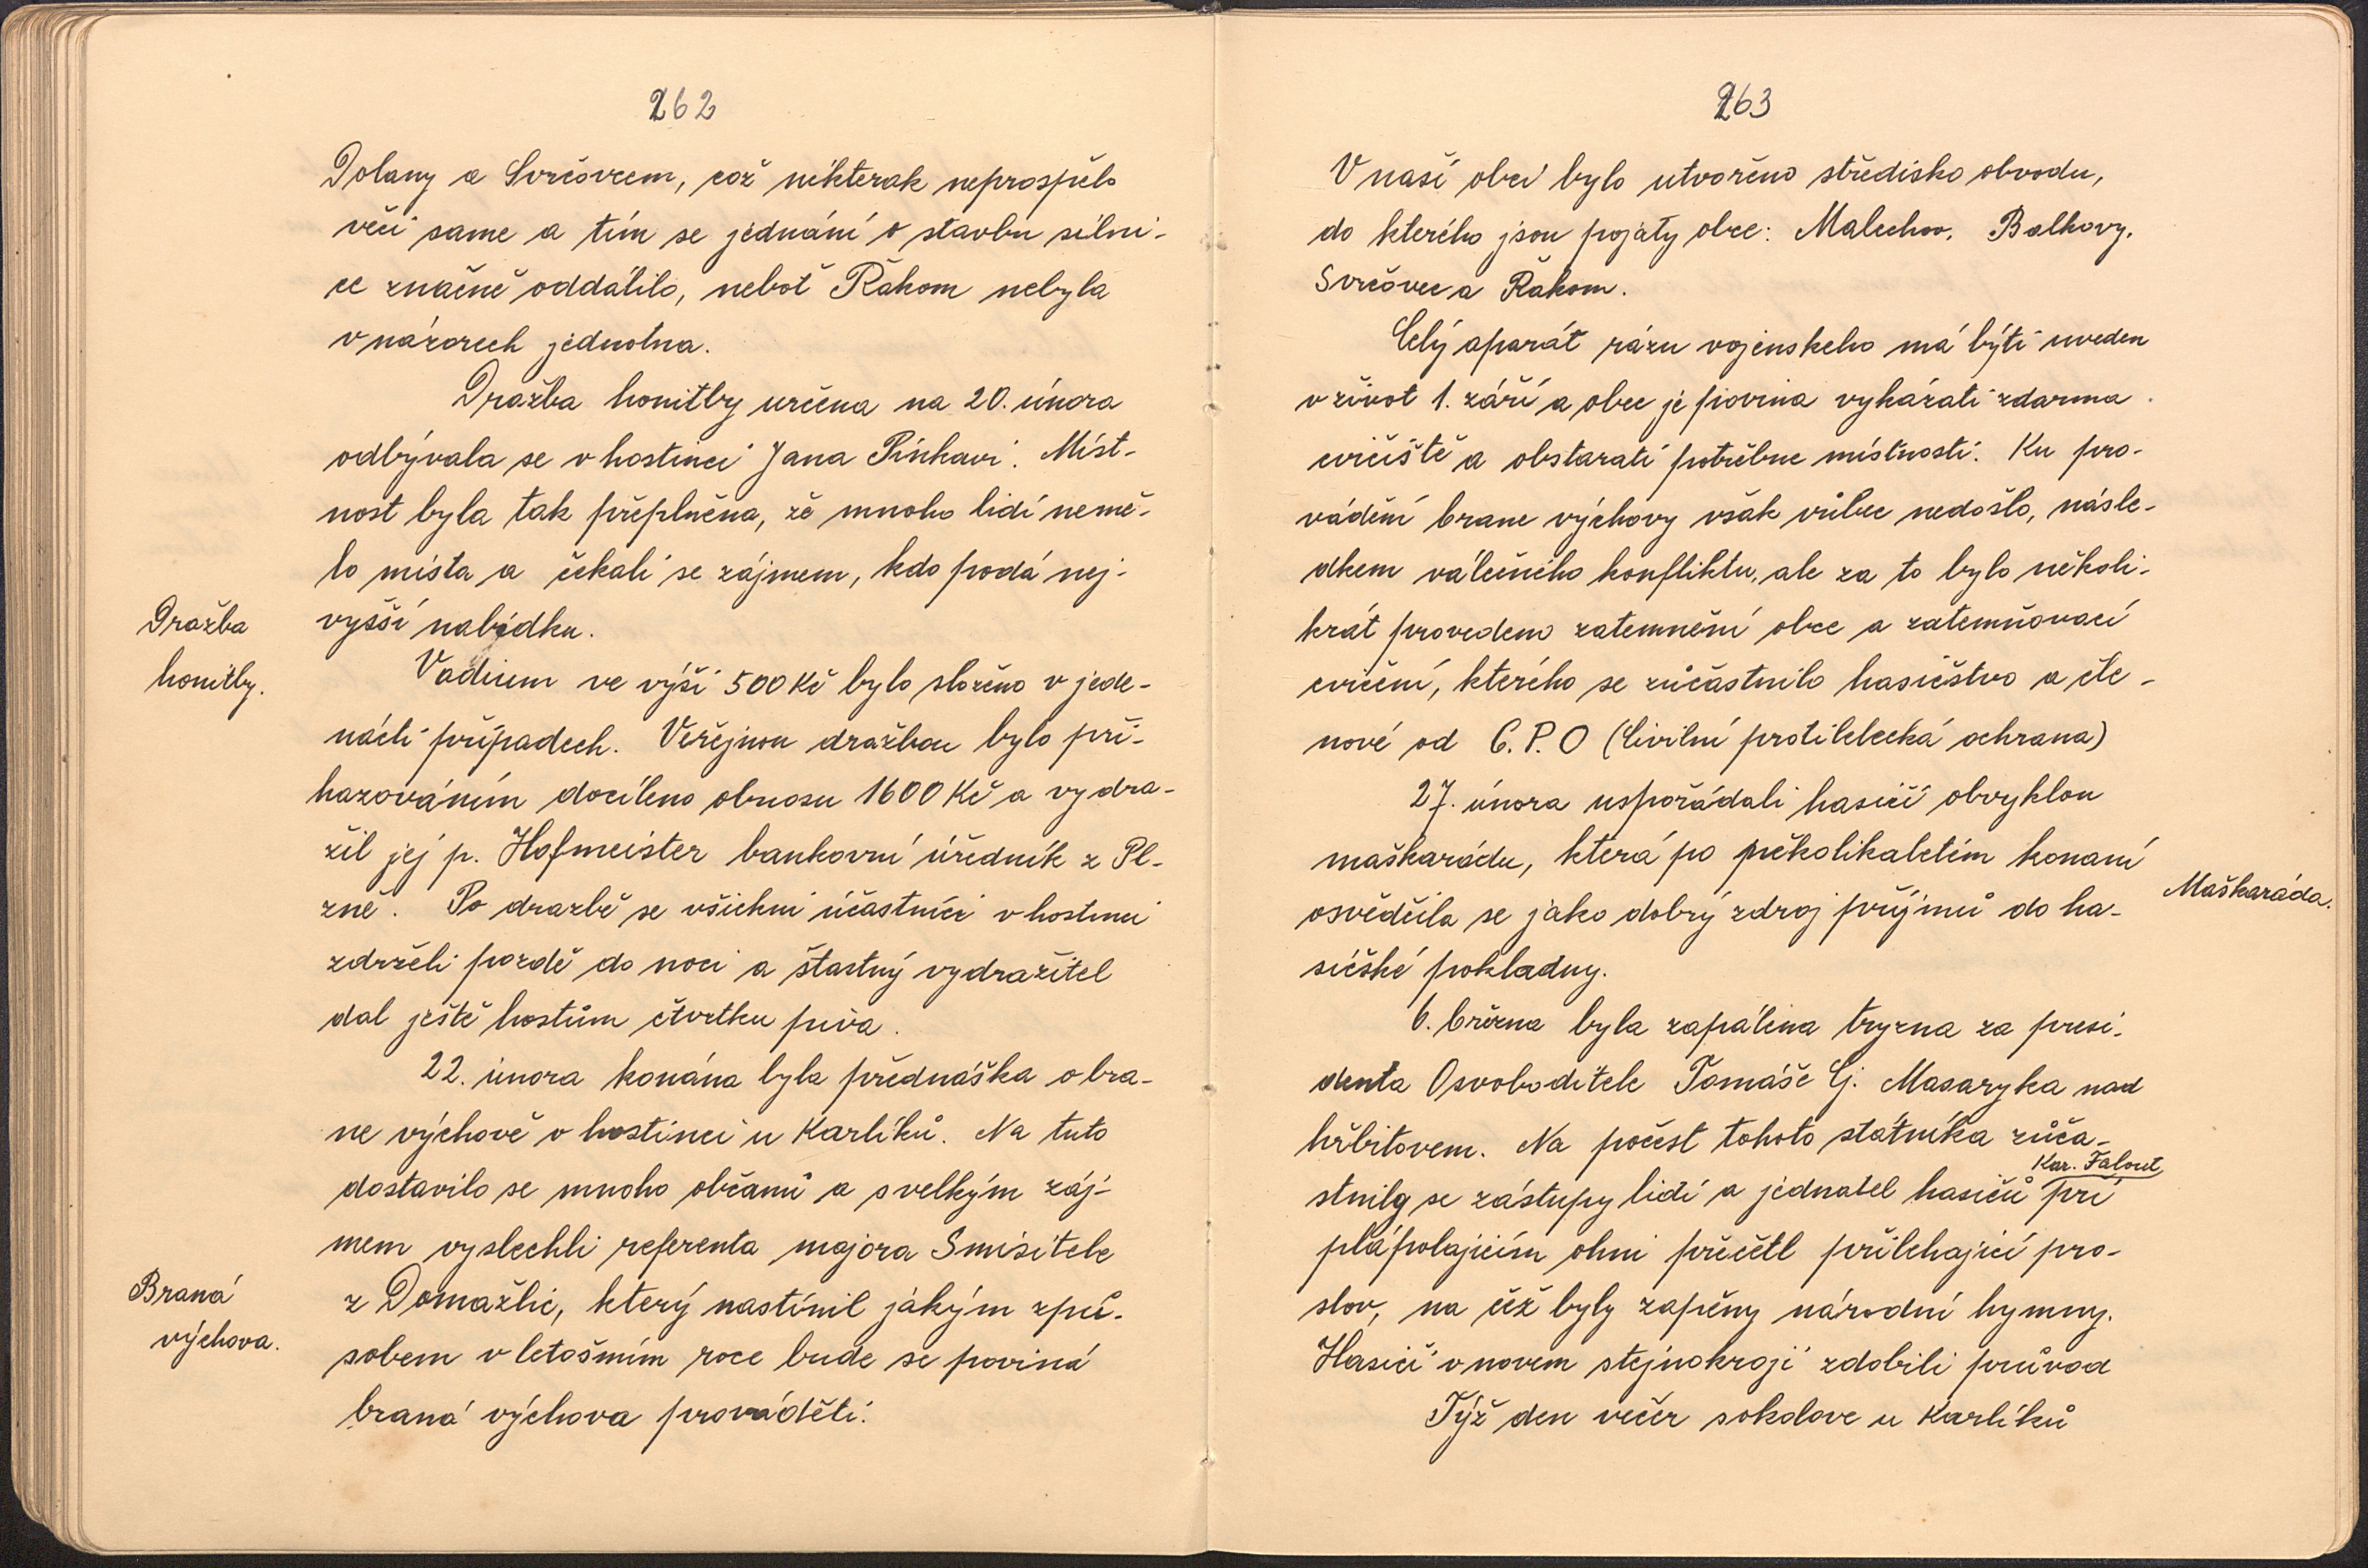 262
Dolany a Svrčovcem, což nikterak neprospělo
věci same a tím se jednání o stavbu silni-
ce značně oddálilo, neboť Řakom nebyla
v názorech jednotna.
Dražba honitby určena na 20. února
odbývala se v hostinci Jana Pinkavi. Míst-
nost byla tak přeplněna, že mnoho lidí nemě-
lo místa a čekali se zájmem, kdo podá nej-
vyšší nabídku.
Dražba
honitby.
Vadium ve výši 500 Kč bylo složeno v jede-
nácti případech. Veřejnou dražbou bylo při-
hazováním docíleno obnosu 1600 Kč a vydra-
žil jej p. Hofmeister bankovní úředník z Pl-
zně. Po dražbě se všichni účastníci v hostinci
zdrželi pozdě do noci a štastný vydražitel
dal ještě hostům čtvrtku piva.
22. února konána byla přednáška o bra-
ne výchově v hostinci u Karlíků. Na tuto
dostavilo se mnoho občanů a s velkým záj-
mem vyslechli referenta majora Smisitele
z Domažlic, který nastínil jakým způ-
sobem v letošním roce bude se poviná
braná výchova prováděti.
Braná
výchova.
263
V naší obci bylo utvořeno středisko obvodu,
do kterého jsou pojaty obce: Malechov, Balkovy,
Svrčovec a Řakom.
Celý aparát rázu vojenskeho má býti uveden
v život 1. září a obec je povina vykázati zdarma
cvičiště a obstarati potřebne místnosti. Ku pro-
vádění brane výchovy však vůbec nedošlo, násle-
dkem válečného konfliktu, ale za to bylo několi-
krát provedeno zatemnění obce a zatemňovací
cvičení, kterého se zůčastnilo hasičstvo a čle-
nové od C.P.O (Civilní protiletecká ochrana)
27. února uspořádali hasiči obvyklou
maškarádu, která po několikaletím konaní
osvědčila se jako dobrý zdroj příjmů do ha-
sičské pokladny.
Maškaráda.
6. března byla zapálena tryzna za presi-
denta Osvoboditele Tomáše G. Masaryka nad
hřbitovem. Na počest tohoto státníka zůča-
stnily se zástupy lidi a jednatel hasičů Kar. Falout při
plápolajicím ohni přečetl přilehající pro-
slov, na čež byly zapěny národní hymny.
Hasiči v novem stejnokroji zdobili průvod
Týž den večer sokolove u Karlíků